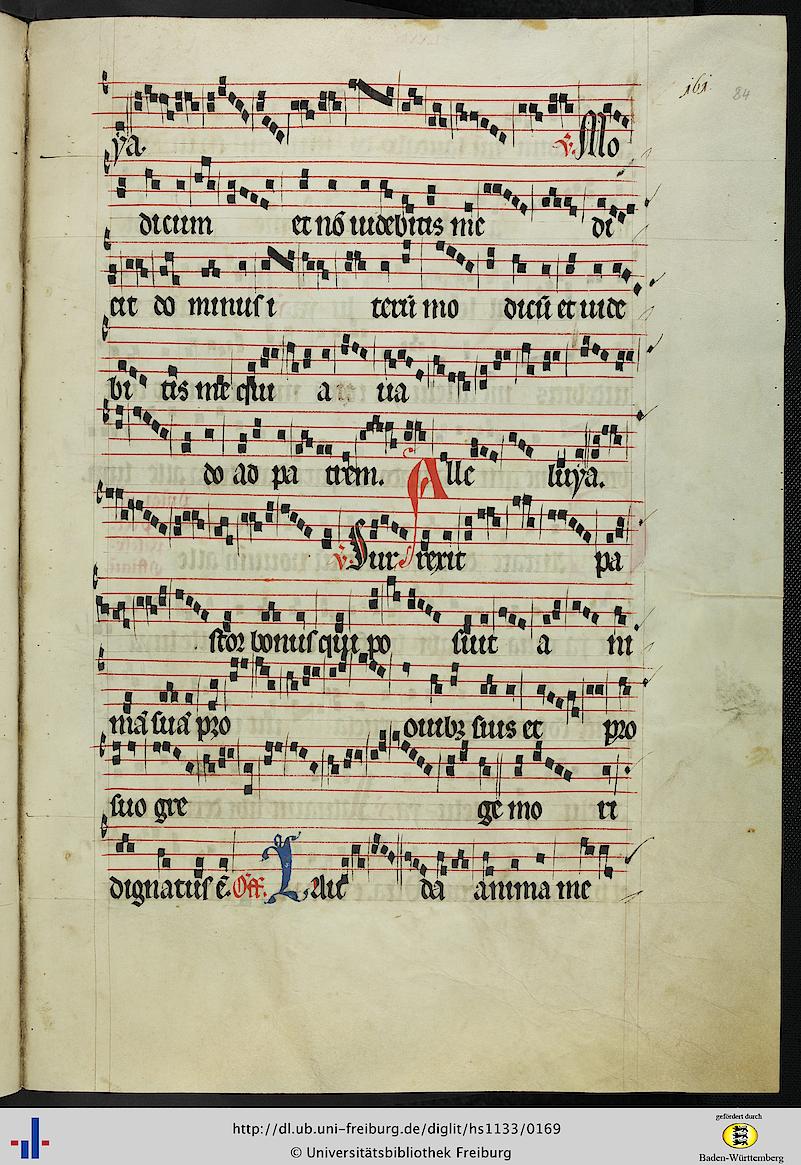 161
84
ya. ꝟ. Mo
dicum et nō uidebitis me di
cit do minus i terū mo dicū et uide
bi tis me qui a ua
do ad pa trem. Alle luya.
ꝟ. Sur rexit pa
stor bonus qui po suit a ni
mā suā pro ouibꝫ suis et pro
suo gre ge mo ri
dignatus ē. Off. Lau da anima me
http://dl.ub.uni-freiburg.de/diglit/hs1133/0169
© Universitätsbibliothek Freiburg
gefördert durch
Baden-Württemberg